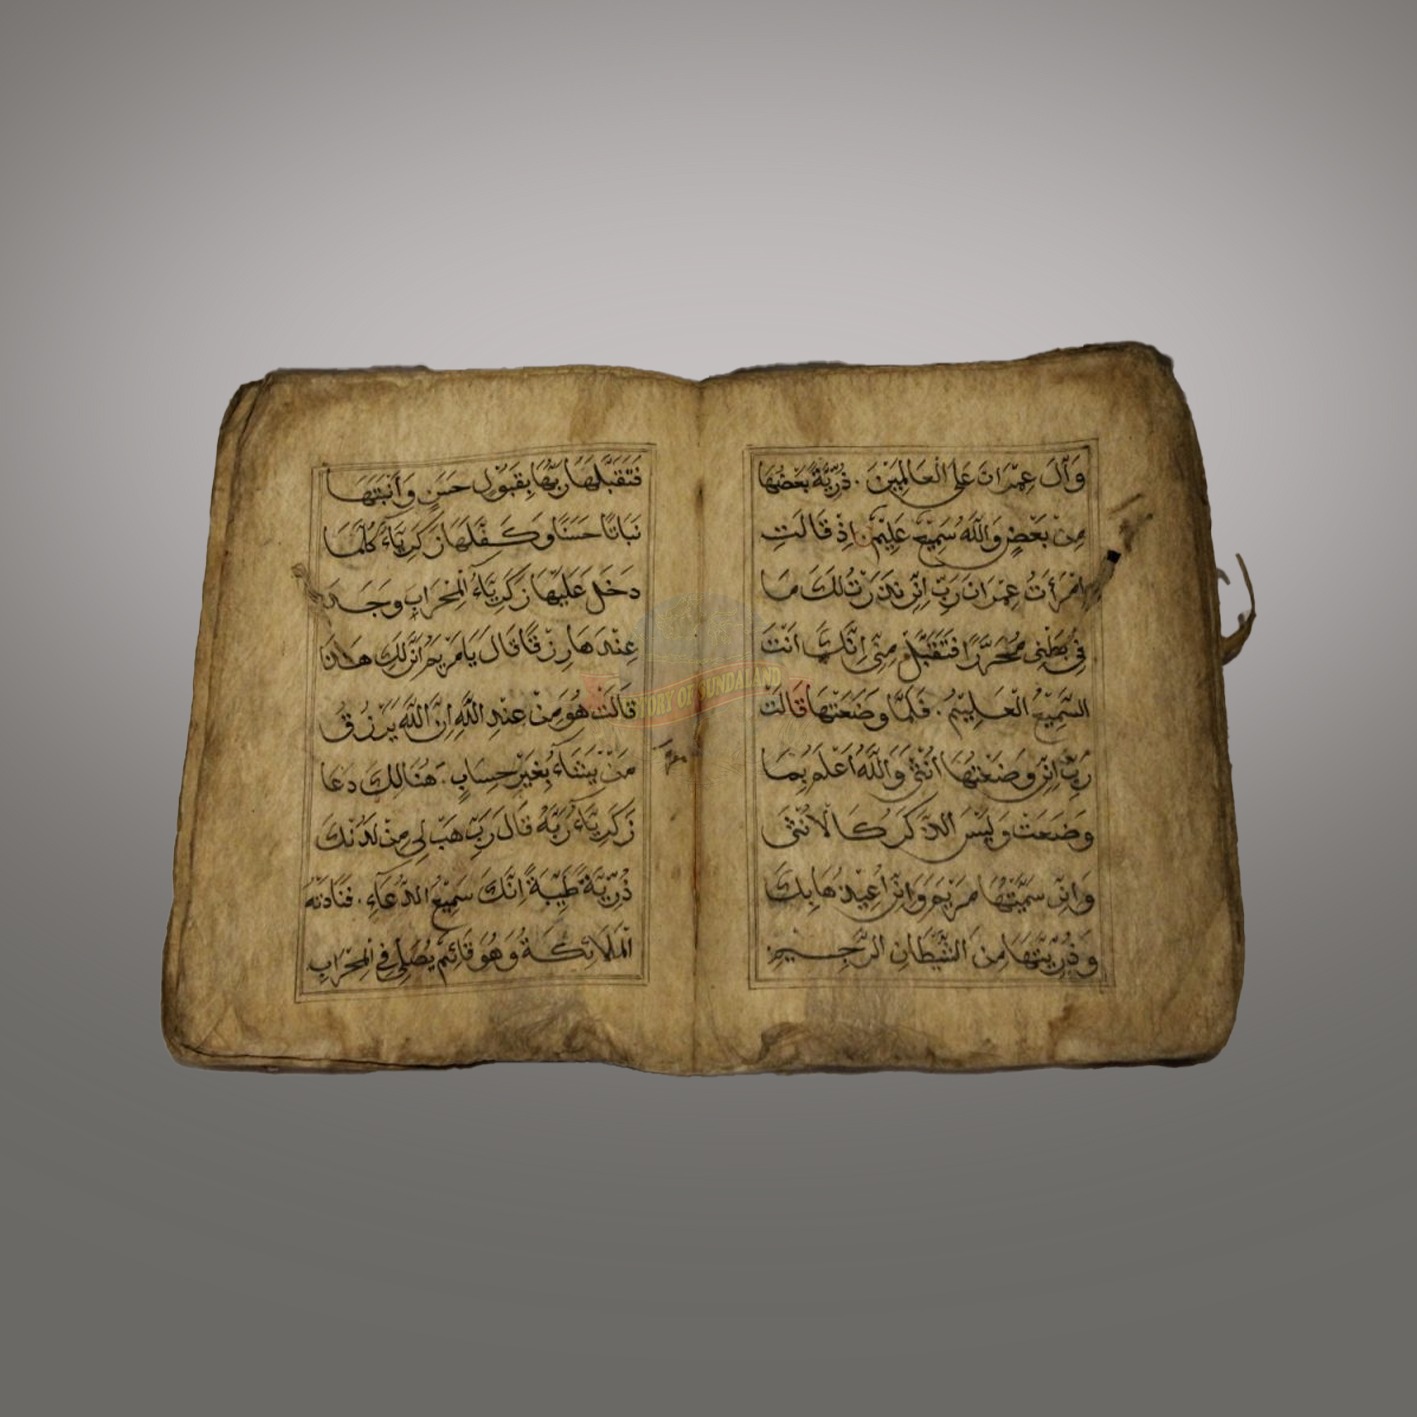 وَأٰلَ عِمْرَانَ عَلَى الْعَالَمِيْنَ . ذُرِّيَّةً بَعْضُهَا
مِنْ بَعْضٍ وَاللّٰهُ سَمِيْعٌ عَلِيْمٌ اِذْ قَالَتِ
امْرَأَتُ عِمْرَانَ رَبِّ اِنِّى نَذَرْتُ لَكَ مَا
فِى بَطْنِى مُحَرَّرًا فَتَقَبَّلْ مِنِّى اِنَّكَ اَنْتَ
السَّمِيْعُ الْعَلِيْمُ . فَلَمَّا وَضَعَتْهَا قَالَتْ
رَبِّ اِنِّى وَضَعْتُهَا اُنْثٰى وَاللّٰهُ اَعْلَمُ بِمَا
وَضَعَتْ وَلَيْسَ الذَّكَرُ كَالْاُنْثٰى
وَاِنِّى سَمَّيْتُهَا مَرْيَمَ وَاِنِّى اُعِيْذُهَا بِكَ
وَذُرِّيَّتَهَا مِنَ الشَّيْطَانِ الرَّجِيْمِ
فَتَقَبَّلَهَا رَبُّهَا بِقَبُوْلٍ حَسَنٍ وَأَنْبَتَهَا
نَبَاتًا حَسَنًا وَكَفَّلَهَا زَكَرِيَّاءَ كُلَّمَا
دَخَلَ عَلَيْهَا زَكَرِيَّاءُ الْمِحْرَابَ وَجَدَ
عِنْدَهَا رِزْقًا قَالَ يَا مَرْيَمُ اَنّٰى لَكِ هَذَا
قَالَتْ هُوَ مِنْ عِنْدِ اللّٰهِ اِنَّ اللّٰهَ يَرْزُقُ
مَنْ يَشَاءُ بِغَيْرِ حِسَابٍ . هُنَالِكَ دَعَا
زَكَرِيَّاءُ رَبَّهُ قَالَ رَبِّ هَبْ لِى مِنْ لَدُنْكَ
ذُرِّيَّةً طَيِّبَةً اِنَّكَ سَمِيْعُ الدُّعَاءِ . فَنَادَتْهُ
الْمَلَائِكَةُ وَهُوَ قَائِمٌ يُصَلِّى فِى الْمِحْرَابِ
STORY OF SUNDALAND